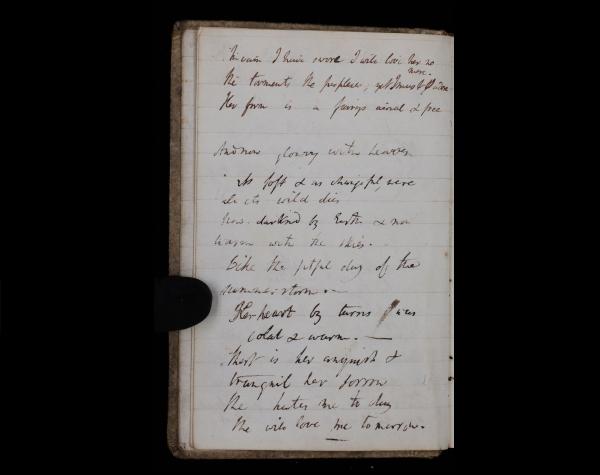 In vain I have swore I will love her no
more.
She torments she perplexes, yet I must adore
Her form is a fairy's aireal & free
And now glowing with heaven
As soft & as changeful, were
its wild dies
Now darkn'd by Earth & now
heaven with the skies.
Like the fitful day of the
summer storm —
Her heart by turns
cold & warm. —
Short is her anguish &
tranquil her sorrow
She hates me to day
She will love me tomorrow.